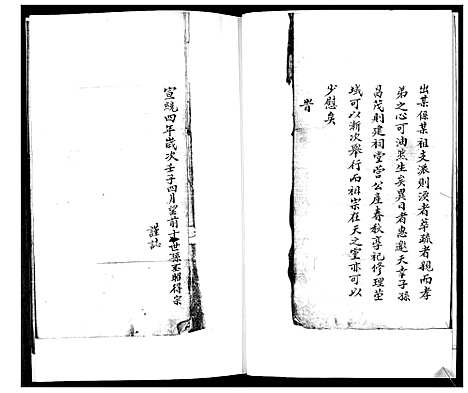 出某係某祖支派則渙者萃疏者親而孝
弟之心可油然生矣異日者惠邀天幸子孫
昌茂則建祠堂營公產春秋享祀修理塋
域可以漸次舉行而祖宗在天之靈亦可以
少慰矣
旹
宣統四年歲次壬子四月望前十世孫丕昭得宗
謹誌